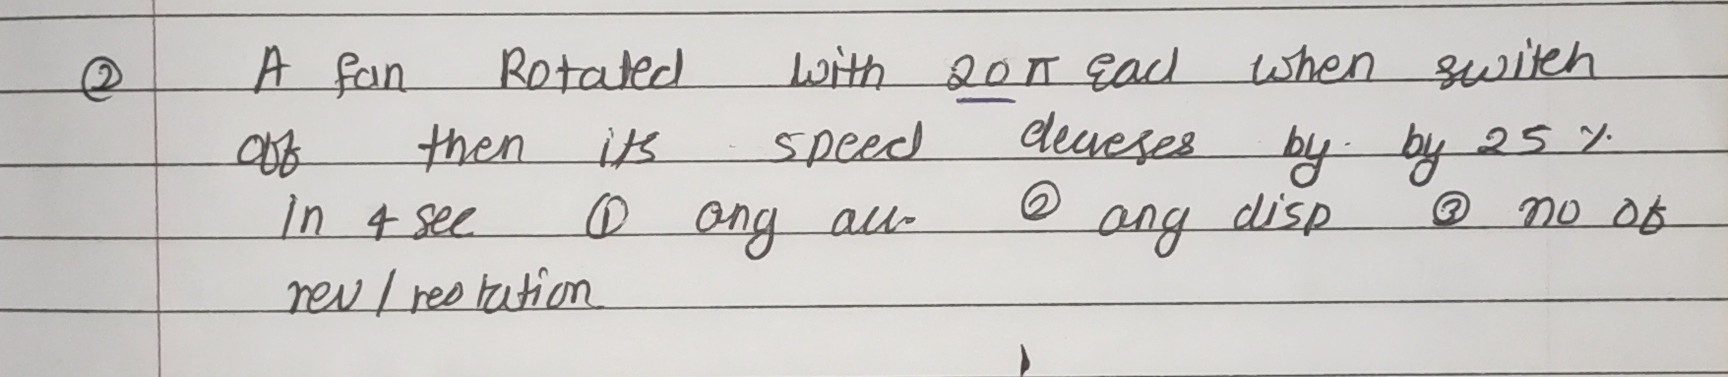 ② A fan Rotated with 20π rad when switch
off then its speed decreses by by 25 %.
in 4 sec ① ang acc. ② ang disp ③ no of
rev / reotation